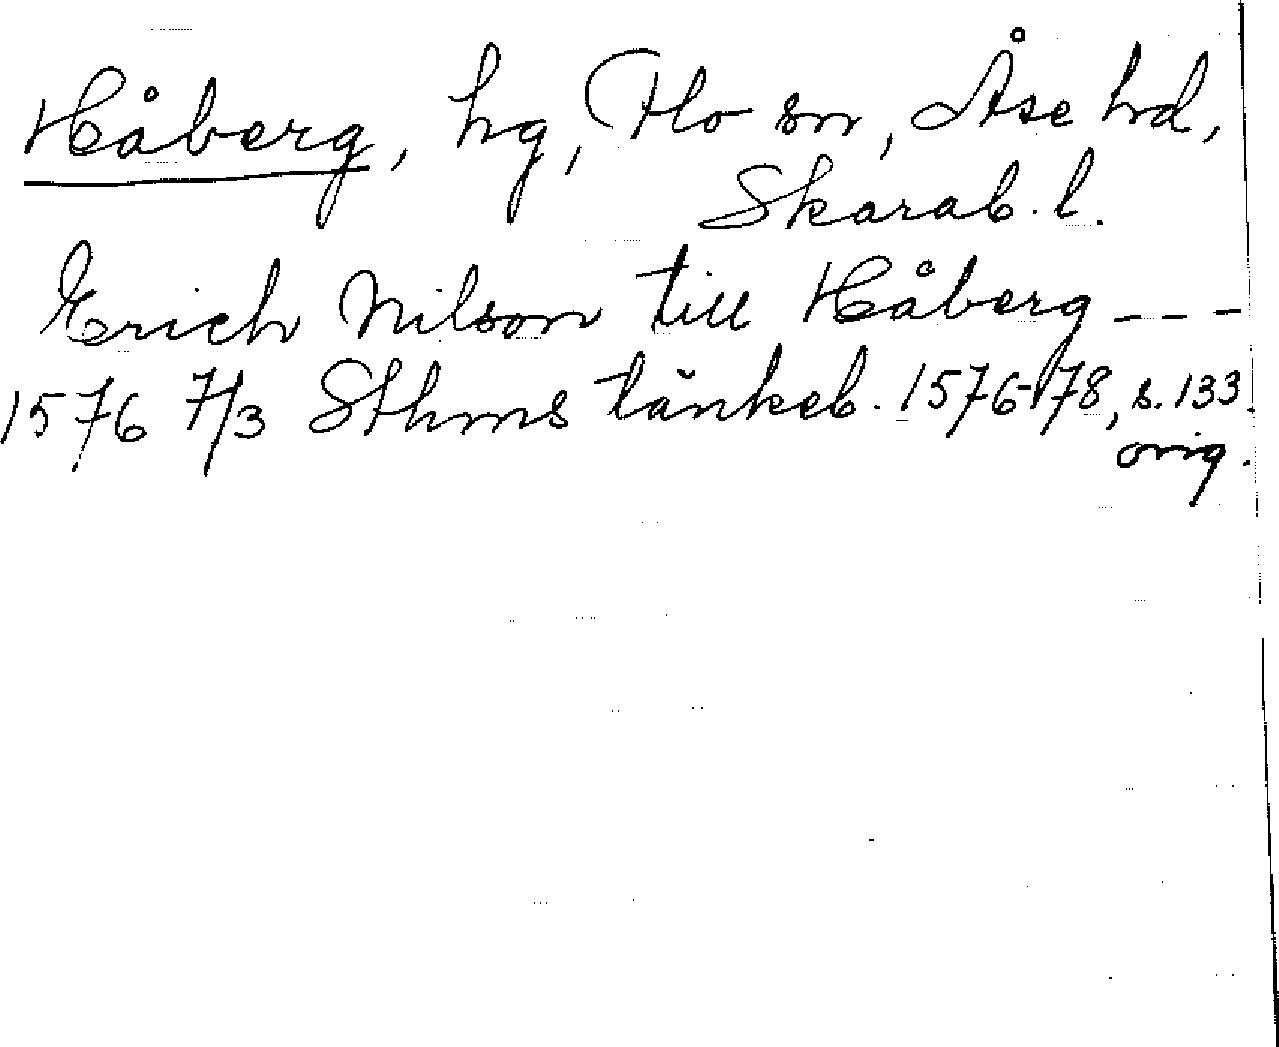 Håberg, hg, Flo sn, Åse hd,
Skarab. l.
Erich Nilson till Håberg ---
1576 7/3 Sthms tänkeb. 1576-78, s. 133.
orig.